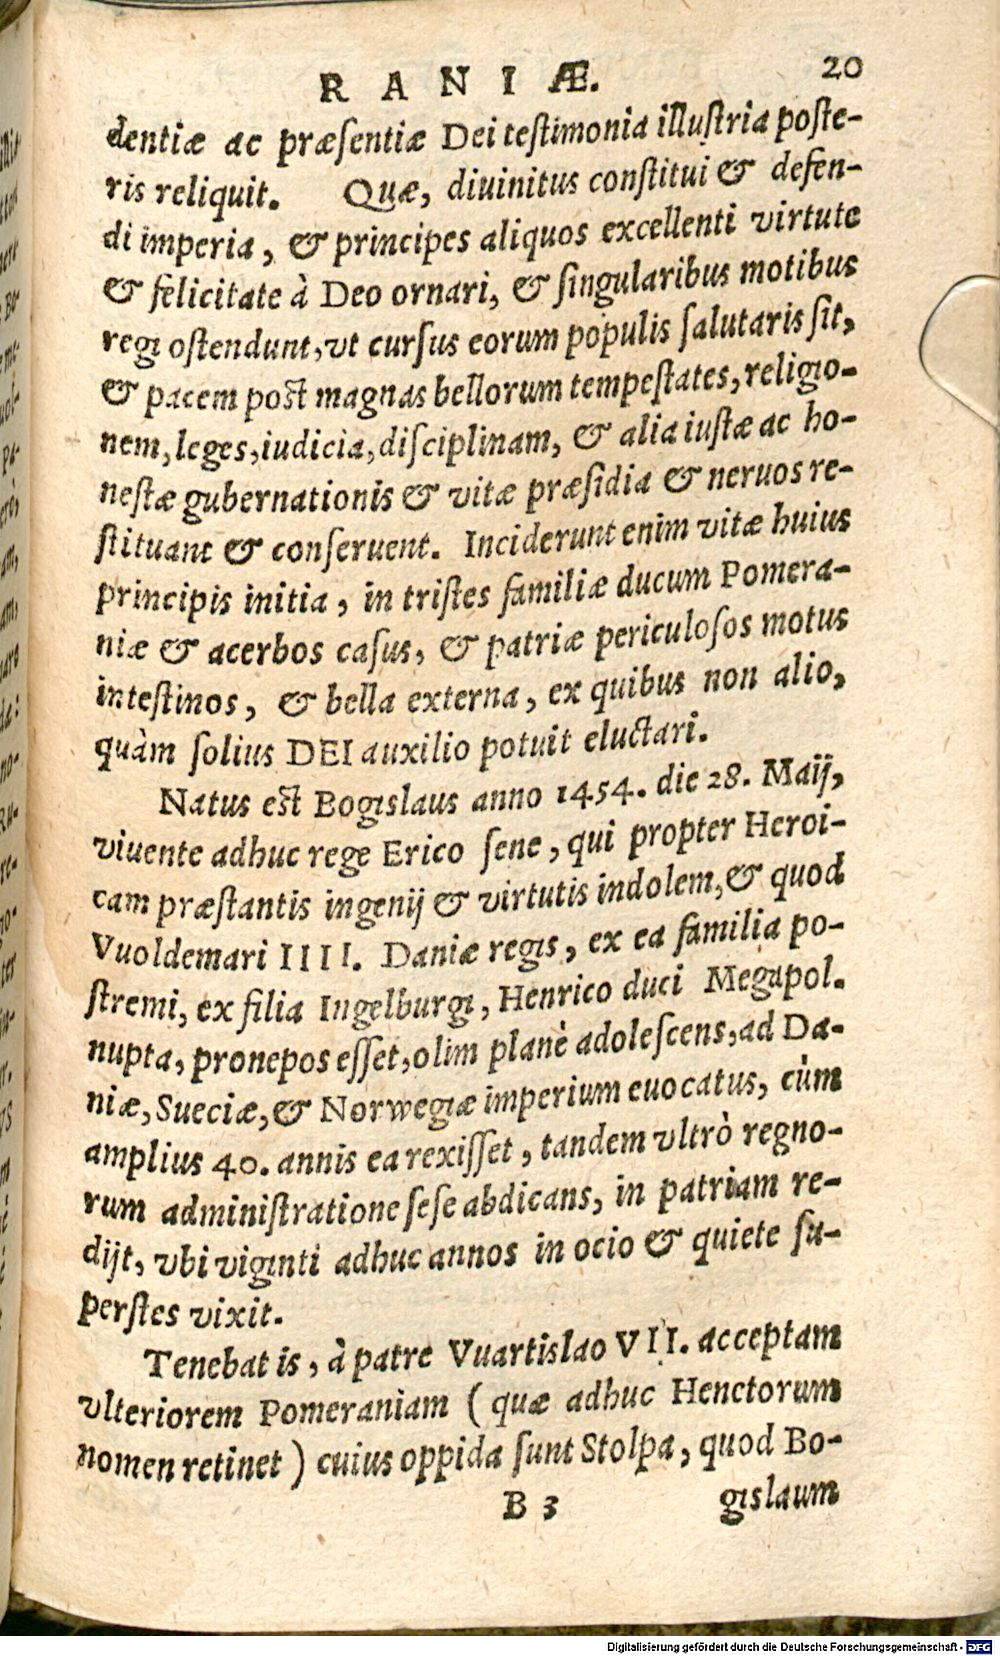 RANIÆ. 20
dentiæ ac præſentiæ Dei teſtimonia illuſtria poſte-
ris reliquit. Quæ, diuinitus conſtitui & defen-
di imperia, & principes aliquos excellenti virtute
& felicitate à Deo ornari, & ſingularibus motibus
regi oſtendunt, vt curſus eorum populis ſalutaris ſit,
& pacem poſt magnas bellorum tempeſtates, religio-
nem, leges, iudicia, diſciplinam, & alia iuſtæ ac ho-
neſtæ gubernationis & vitæ præſidia & neruos re-
ſtituant & conſeruent. Inciderunt enim vitæ huius
principis initia, in triſtes familiæ ducum Pomera-
niæ & acerbos caſus, & patriæ periculoſos motus
inteſtinos, & bella externa, ex quibus non alio,
quàm ſolius DEI auxilio potuit eluctari.
Natus eſt Bogislaus anno 1454. die 28. Maij,
viuente adhuc rege Erico ſene, qui propter Heroi-
cam præſtantis ingenij & virtutis indolem, & quod
Vuoldemari IIII. Daniæ regis, ex ea familia po-
ſtremi, ex filia Ingelburgi, Henrico duci Megapol.
nupta, pronepos eſſet, olim planè adoleſcens, ad Da-
niæ, Sueciæ, & Norwegiæ imperium euocatus, cùm
amplius 40. annis ea rexiſſet, tandem vltrò regno-
rum adminiſtratione ſeſe abdicans, in patriam re-
dijt, vbi viginti adhuc annos in ocio & quiete ſu-
perſtes vixit.
Tenebat is, à patre Vuartislao VII. acceptam
vlteriorem Pomeraniam ( quæ adhuc Henetorum
nomen retinet ) cuius oppida ſunt Stolpa, quod Bo-
B 3 gislaum
Digitalisierung gefördert durch die Deutsche Forschungsgemeinschaft - DFG